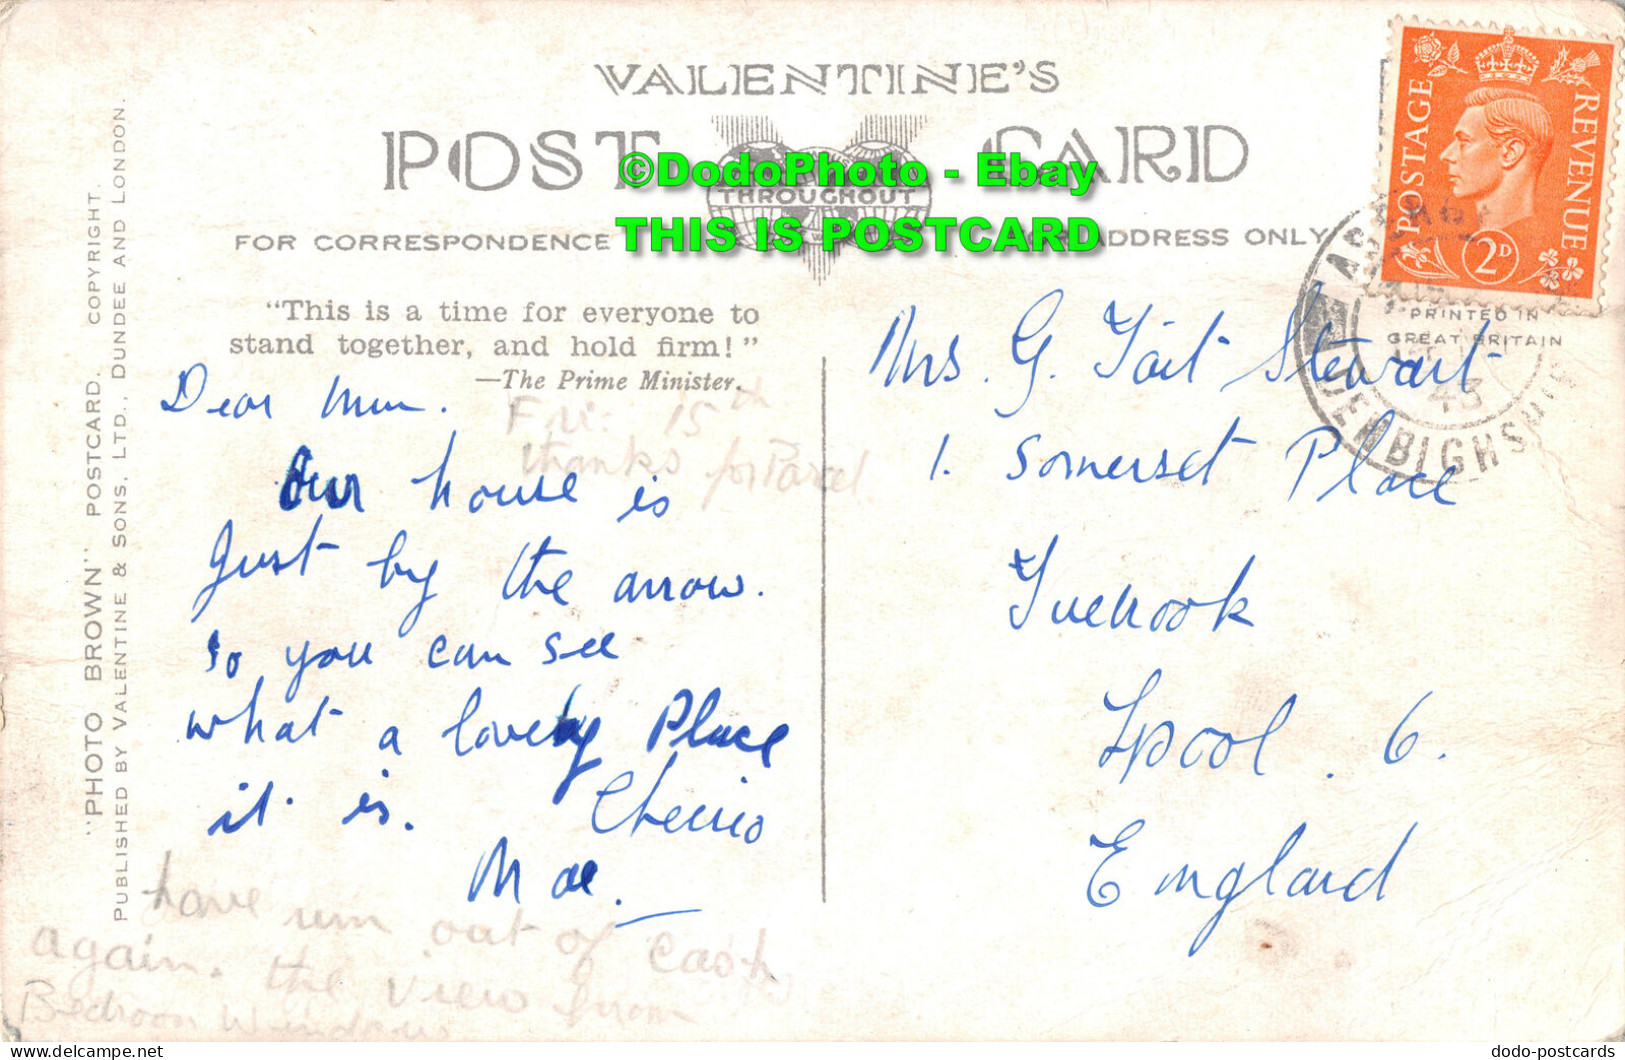 VALENTINE'S
POST CARD
THROUGHOUT
©DodoPhoto - Ebay
THIS IS POSTCARD
FOR CORRESPONDENCE
ADDRESS ONLY
POSTAGE
REVENUE
2D
PRINTED IN
GREAT BRITAIN
43
DENBIGHSHIRE
"This is a time for everyone to
stand together, and hold firm!"
—The Prime Minister.
Dear Mum.
Fri: 15th
thanks for Parcel
Our house is
just by the arrow.
so you can see
what a lovely Place
it is. Cheerio
Mae.
have run out of cash
again. the view from
Bedroom Windows
Mrs. G. Tait Stewart
1. Somerset Place
Tuebrook
Lpool. 6.
England
"PHOTO BROWN" POSTCARD. COPYRIGHT.
PUBLISHED BY VALENTINE & SONS, LTD., DUNDEE AND LONDON.
delcampe.net
dodo-postcards